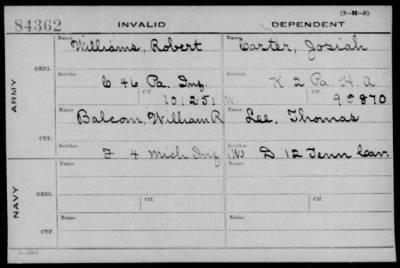 (3-H-5)
84362 INVALID DEPENDENT
Name Name
Williams, Robert Carter, Josiah
ORIG. Service Service
C 46 Pa. Inf. K 2 Pa. H. A.
Ctf. Ctf.
101251 W. 90870
ARMY
Name Name
Balcom, William R Lee, Thomas
CTF. Service Service
F 4 Mich Inf (W) D 12 Tenn Cav.
Name Name
ORIG. Service Service
Ctf. Ctf.
NAVY
Name Name
CTF. Service Service